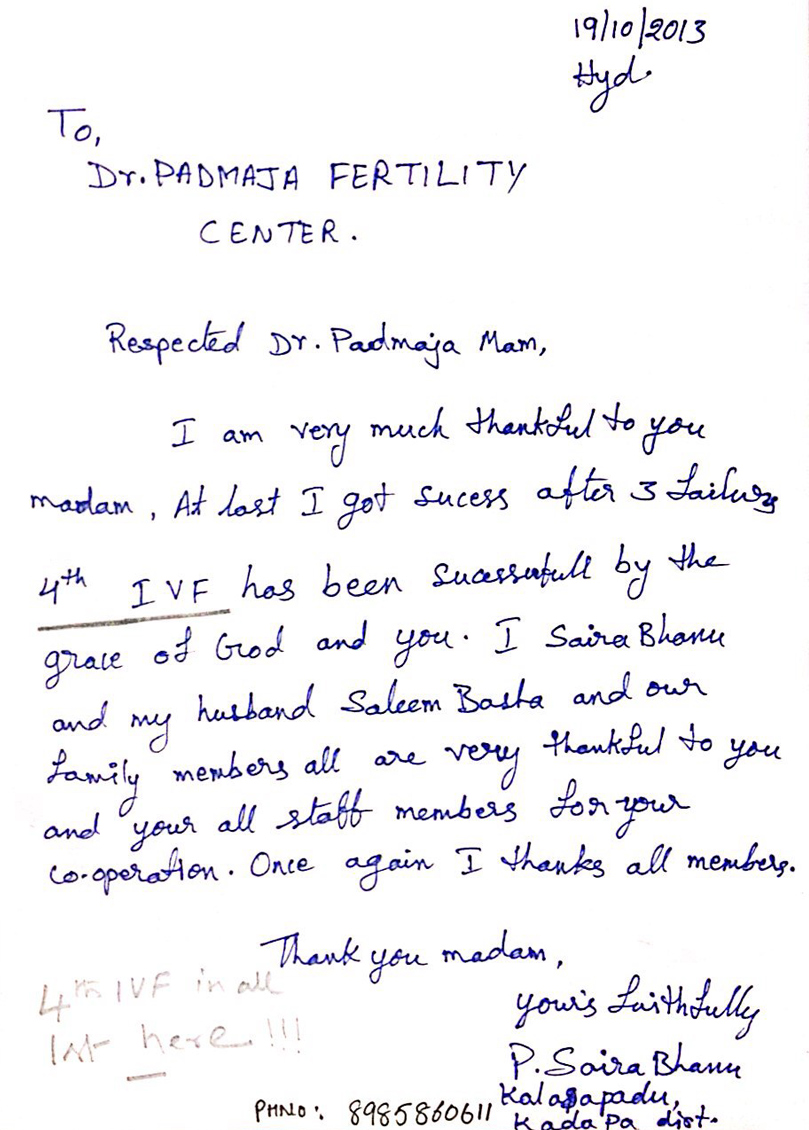 19/10/2013
Hyd.
To,
Dr. PADMAJA FERTILITY
CENTER.
Respected Dr. Padmaja Mam,
I am very much thankful to you
madam, At last I got sucess after 3 failures
4th IVF has been sucessfull by the
grace of God and you. I Saira Bhanu
and my husband Saleem Basha and our
family members all are very thankful to you
and your all staff members for your
co-operation. Once again I thanks all members.
Thank you madam,
your's faithfully
P. Saira Bhanu
Kalasapadu,
Kadapa dist.
4th IVF in all
1st here.!!!
PHNO: 8985860611